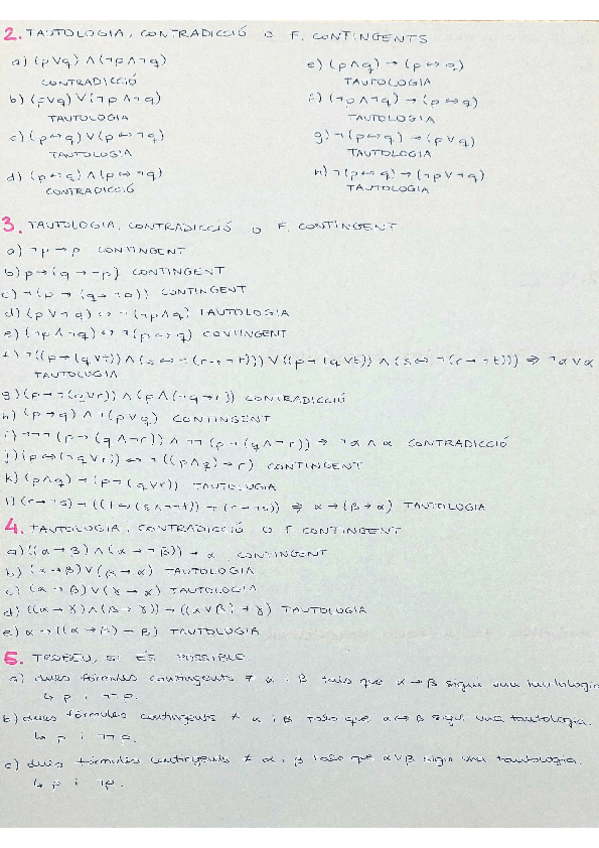 2. TAUTOLOGIA, CONTRADICCIÓ O F. CONTINGENTS
a) (p∨q) ∧ (¬p∧¬q)
CONTRADICCIÓ
b) (p∨q) ∨ (¬p∧¬q)
TAUTOLOGIA
c) (p↔q) ∨ (p↔¬q)
TAUTOLOGIA
d) (p↔q) ∧ (p↔¬q)
CONTRADICCIÓ
e) (p∧q) → (p↔q)
TAUTOLOGIA
f) (¬p∧¬q) → (p↔q)
TAUTOLOGIA
g) ¬(p↔q) → (p∨q)
TAUTOLOGIA
h) ¬(p↔q) → (¬p∨¬q)
TAUTOLOGIA
3. TAUTOLOGIA, CONTRADICCIÓ O F. CONTINGENT
a) ¬p→p CONTINGENT
b) p→(q→¬p) CONTINGENT
c) ¬(p→(q→ )) CONTINGENT
d) (p∨¬q) ↔ ¬(¬p∧q) TAUTOLOGIA
e) (¬p∧¬q) ↔ ¬(p↔q) CONTINGENT
f) ¬((p→(q∨t)) ∧ (s↔¬(r→¬t))) ∨ ((p→(q∨t)) ∧ (s↔¬(r→¬t))) ⇒ ¬α∨α
TAUTOLOGIA
g) (p→¬(q∨r)) ∧ (p∧(¬q→r)) CONTRADICCIÓ
h) (p→q) ∧ (p∨q) CONTINGENT
i) ¬¬¬(p→(q∧¬r)) ∧ ¬¬(p→(q∧¬r)) ⇒ ¬α∧α CONTRADICCIÓ
j) (p↔(¬q∨r)) ↔ ¬((p∧q)→r) CONTINGENT
k) (p∧q)→(p→(q∨r)) TAUTOLOGIA
l) (r→¬s)→((t↔(s∧¬t))→(r→¬s)) ⇒ α→(β→α) TAUTOLOGIA
4. TAUTOLOGIA, CONTRADICCIÓ O F CONTINGENT
a) ((α→β)∧(α→¬β))→α CONTINGENT
b) (α→β)∨(β→α) TAUTOLOGIA
c) (α→β)∨(γ→α) TAUTOLOGIA
d) ((α→γ)∧(β→γ))→((α∨β)→γ) TAUTOLOGIA
e) α→((α→β)→β) TAUTOLOGIA
5. TROBEU, SI ÉS POSSIBLE
a) dues fórmules contingents ≠ α i β tals que α→β sigui una tautologia
↳ p i ¬¬p.
b) dues fórmules contingents ≠ α i β tals que α↔β sigui una tautologia.
↳ p i ¬¬p.
c) dues fórmules contingents ≠ α i β tals que α∨β sigui una tautologia.
↳ p i ¬p.